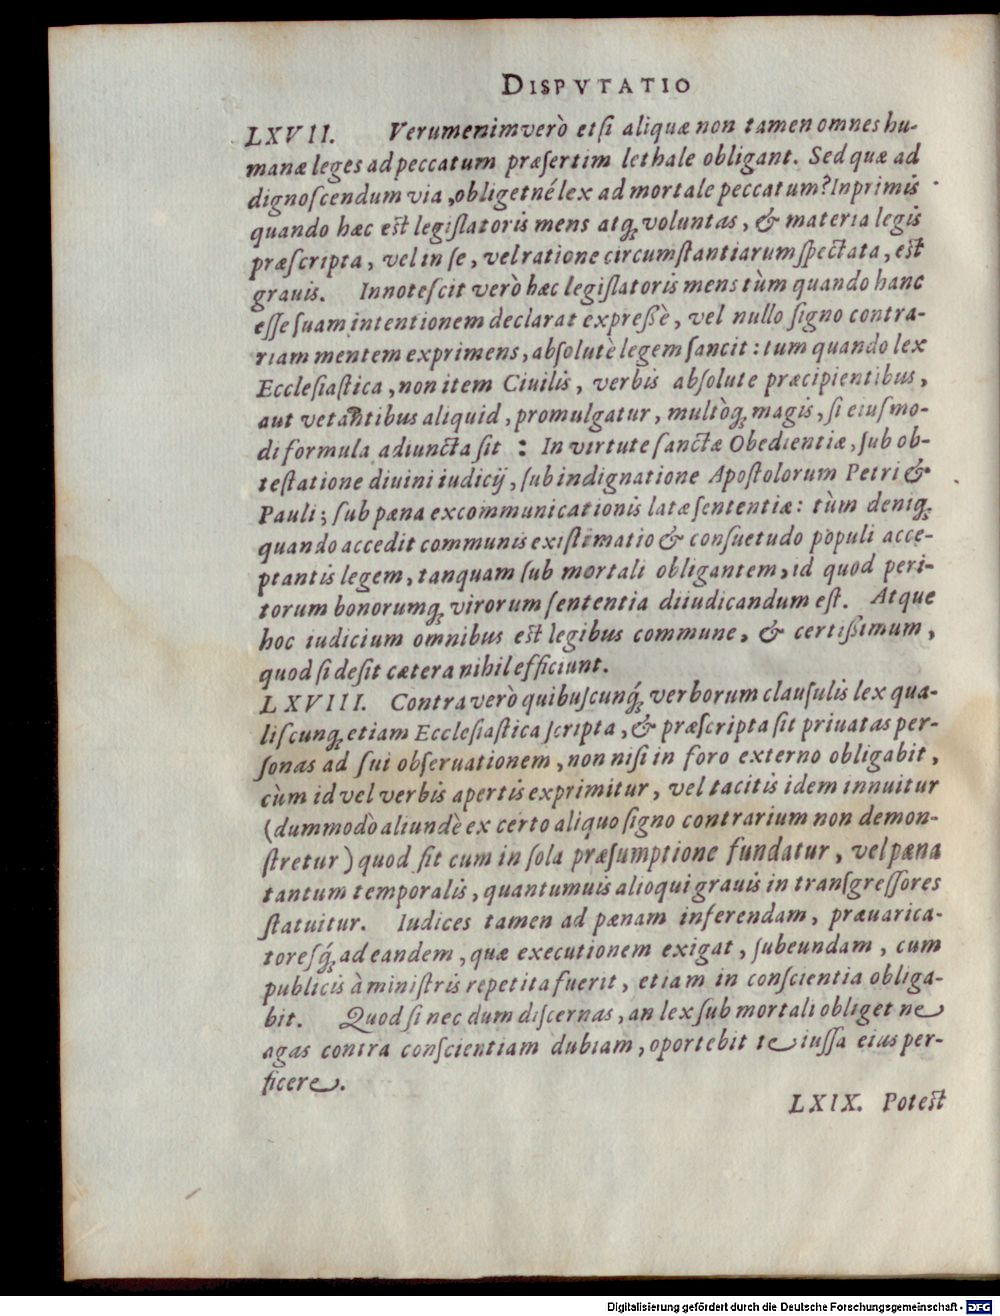 DISPVTATIO
LXVII. Verumenimverò etsi aliquæ non tamen omnes hu-
manæ leges ad peccatum præſertim lethale obligant. Sed quæ ad
dignoſcendum via, obligetné lex ad mortale peccatum? Inprimis
quando hæc est legiſlatoris mens atq; voluntas, & materia legis
præſcripta, vel in ſe, vel ratione circumſtantiarum ſpectata, est
grauis. Innoteſcit verò hæc legiſlatoris mens tùm quando hanc
eſſe ſuam intentionem declarat expreßè, vel nullo ſigno contra-
riam mentem exprimens, abſolutè legem ſancit: tum quando lex
Eccleſiaſtica, non item Ciuilis, verbis abſolute præcipientibus,
aut vetantibus aliquid, promulgatur, multòq; magis, ſi eiuſmo-
di formula adiuncta ſit : In virtute ſanctæ Obedientiæ, ſub ob-
teſtatione diuini iudicij, ſub indignatione Apoſtolorum Petri &
Pauli; ſub pæna excommunicationis latæ ſententiæ: tùm deniq;
quando accedit communis exiſtimatio & conſuetudo populi acce-
ptantis legem, tanquam ſub mortali obligantem, id quod peri-
torum bonorumq; virorum ſententia diiudicandum eſt. Atque
hoc iudicium omnibus est legibus commune, & certißimum,
quod ſi deſit cætera nihil efficiunt.
LXVIII. Contra verò quibuſcunq́; verborum clauſulis lex qua-
liſcunq; etiam Eccleſiaſtica ſcripta, & præſcripta ſit priuatas per-
ſonas ad ſui obſeruationem, non niſi in foro externo obligabit,
cùm id vel verbis apertis exprimitur, vel tacitis idem innuitur
(dummodò aliundè ex certo aliquo ſigno contrarium non demon-
ſtretur) quod fit cum in ſola præſumptione fundatur, vel pæna
tantum temporalis, quantumuis alioqui grauis in tranſgreſſores
ſtatuitur. Iudices tamen ad pænam inferendam, præuarica-
toreſq́; ad eandem, quæ executionem exigat, ſubeundam, cum
publicis à miniſtris repetita fuerit, etiam in conſcientia obliga-
bit. Quod ſi nec dum diſcernas, an lex ſub mortali obliget ne
agas contra conſcientiam dubiam, oportebit te iuſſa eius per-
ficere.
LXIX. Potest
Digitalisierung gefördert durch die Deutsche Forschungsgemeinschaft - DFG